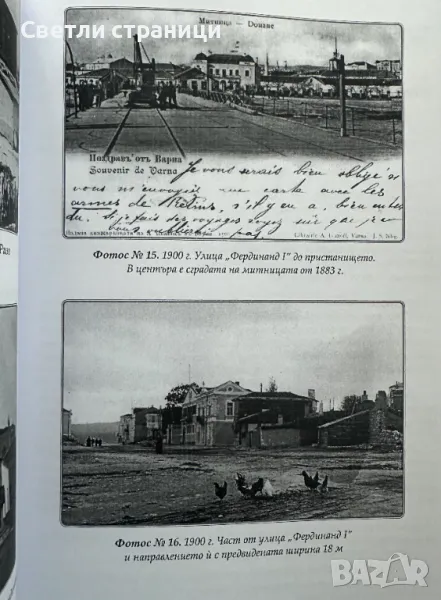 Светли страници
Митница — Douane
Поздравъ отъ Варна
Souvenir de Varna
Je vous serais bien obligé si
vous m'envoyiez une carte avec les
armes de
s'il y en a, bien enten-
du.
Фотос № 15. 1900 г. Улица „Фердинанд I" до пристанището.
В центъра е сградата на митницата от 1883 г.
Фотос № 16. 1900 г. Част от улица „Фердинанд I"
и направлението ѝ с предвидената ширина 18 м
bazar.bg